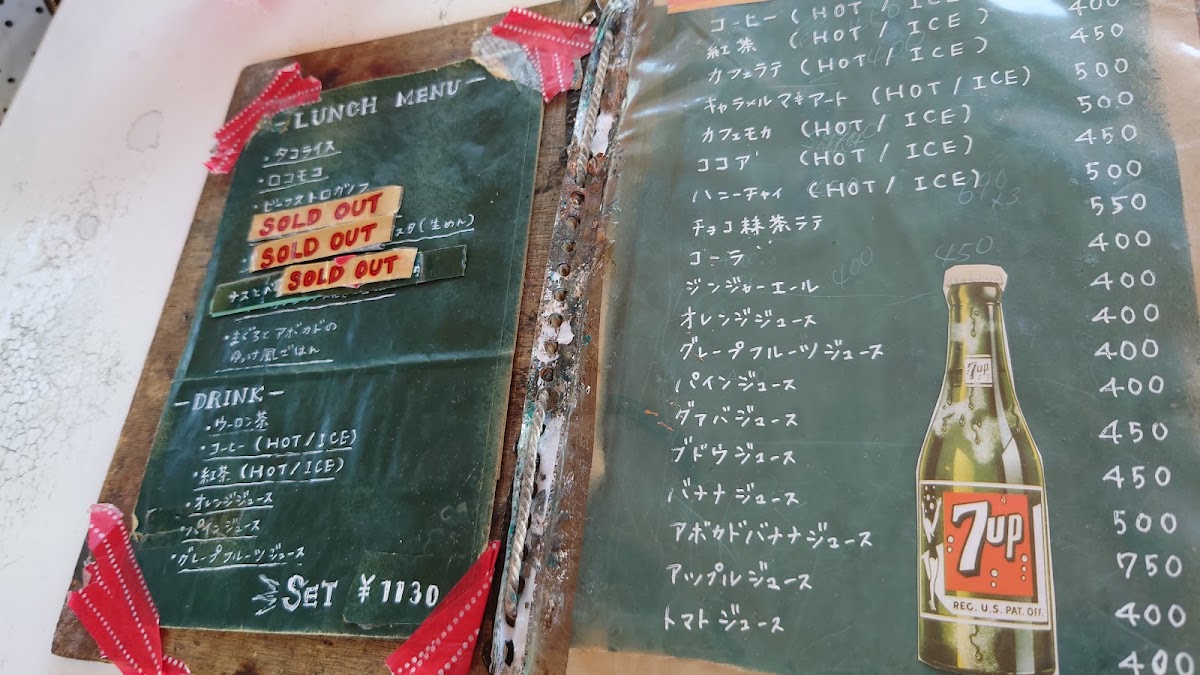 LUNCH MENU
・タコライス
・ロコモコ
・ビーフストロガノフ
SOLD OUT
スタ(生めん)
SOLD OUT
SOLD OUT
ナスと
・まぐろとアボカドの
ゆっけ風ごはん
DRINK
・ウーロン茶
・コーヒー(HOT/ICE)
・紅茶(HOT/ICE)
・オレンジジュース
・パインジュース
・グレープフルーツジュース
SET ¥1130
コーヒー(HOT/ICE) 400
紅茶(HOT/ICE) 450
カフェラテ(HOT/ICE) 500
キャラメルマキアート(HOT/ICE) 500
カフェモカ(HOT/ICE) 450
ココア(HOT/ICE) 500
ハニーチャイ(HOT/ICE) 550
チョコ抹茶ラテ 400
コーラ 400
ジンジャーエール 400
オレンジジュース 400
グレープフルーツジュース 400
パインジュース 450
グァバジュース 450
ブドウジュース 500
バナナジュース 750
アボカドバナナジュース 400
アップルジュース 400
トマトジュース
450
400
7up
7up
REG. U.S. PAT. OFF.